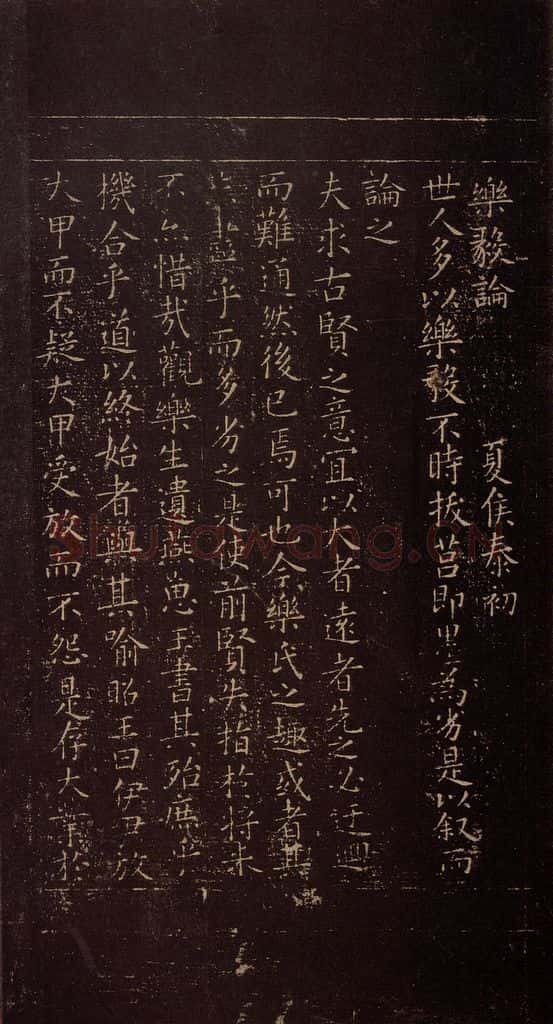 樂毅論 夏侯泰初
世人多以樂毅不時拔莒即墨為劣是以叙而
論之
夫求古賢之意宜以大者遠者先之必迂迴
而難通然後已焉可也今樂氏之趣或者其
盡乎而多劣之是使前賢失指於將来
不亦惜哉觀樂生遺燕惠王書其殆庶乎
機合乎道以終始者與其喻昭王曰伊尹放
大甲而不疑大甲受放而不怨是存大業於
shufawang.CN